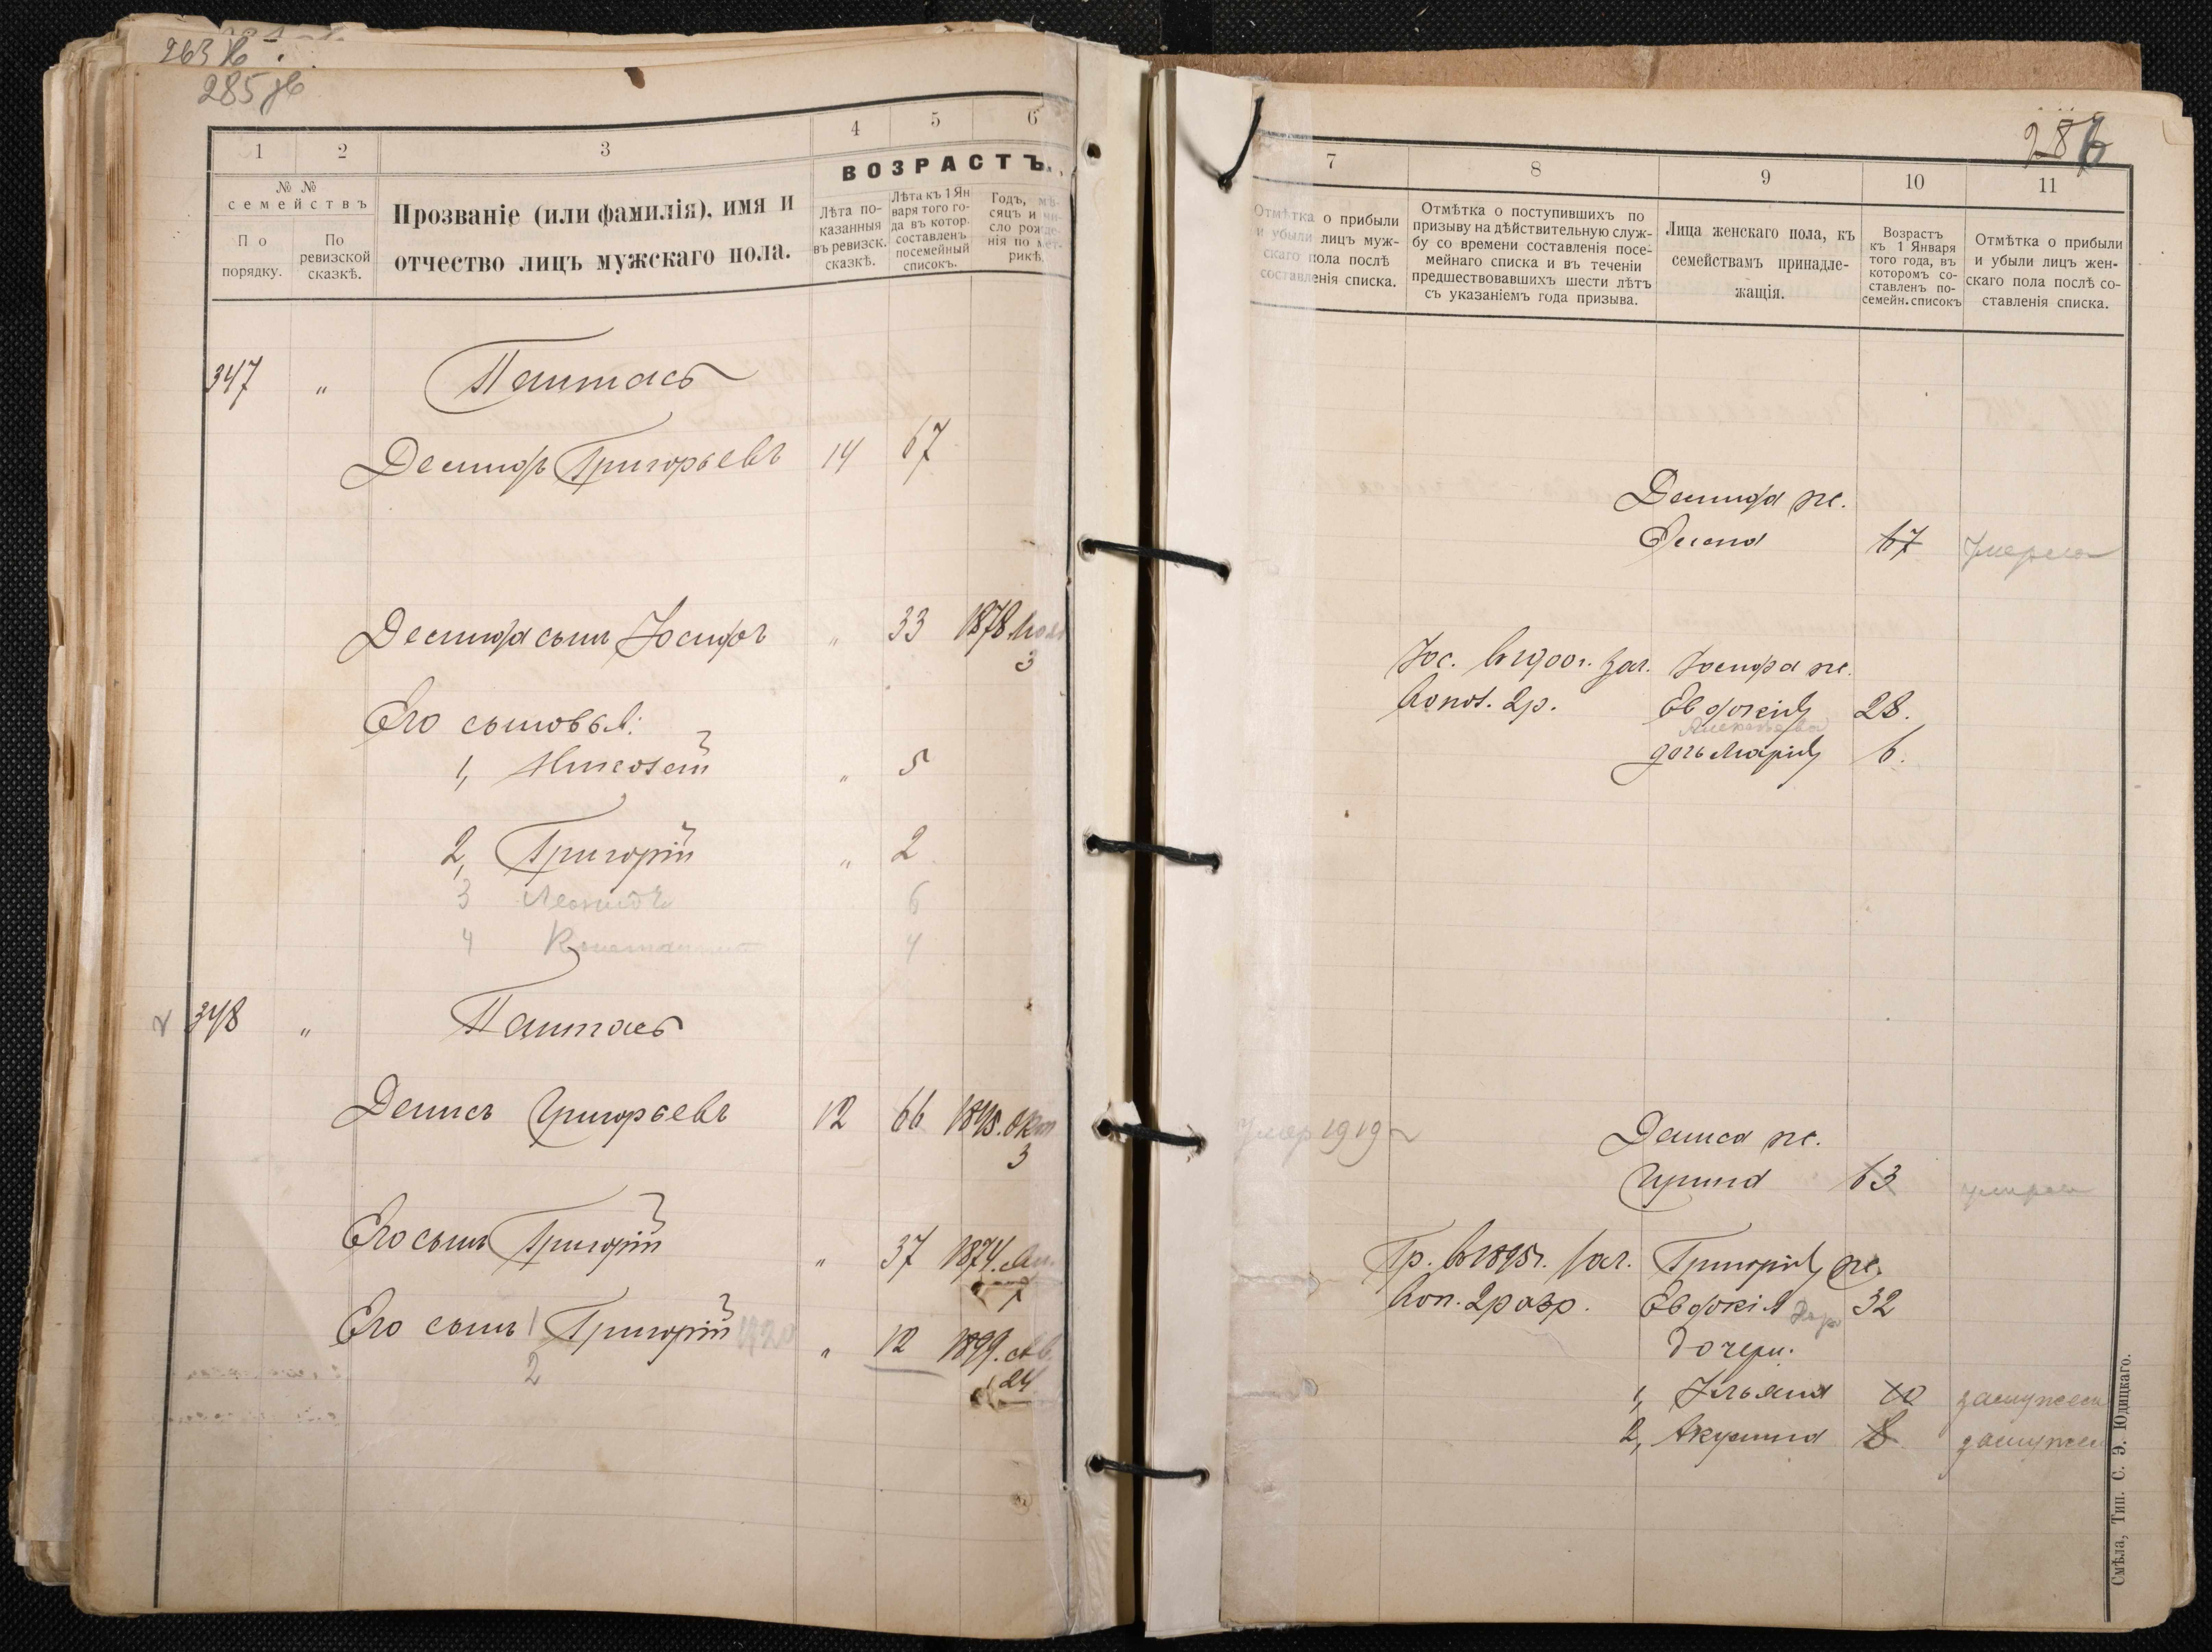 263 Ж
285 Ж
286
1
2
3
4
5
6
№ №
семействъ
По порядку.
По ревизской сказкѣ.
Прозваніе (или фамилія), имя и
отчество лицъ мужскаго пола.
ВОЗРАСТЪ.
Лѣта по-
казанныя
въ ревизск.
сказкѣ.
Лѣта къ 1 Ян
варя того го-
да въ котор.
составленъ
посемейный
списокъ.
Годъ, мѣ-
сяцъ и чи-
сло рожде-
нія по мет-
рикѣ.
347 "
Паштась
Демидъ Григорьевъ 14 67
Демида сынъ Іосифъ " 33 1878
3
Его сыновья:
1, " 5
2, Григорій " 2
3 Леонидъ 6
4 Константинъ 4
348 "
Паштась
Денисъ Григорьевъ 12 66 1845. Окт
3
Его сынъ Григорій " 37 1874. Ян.
1
Его сынъ 1 Григорій " 12 1899.
24
2
7
8
9
10
11
Отмѣтка о прибыли
и убыли лицъ муж-
скаго пола послѣ
составленія списка.
Отмѣтка о поступившихъ по
призыву на дѣйствительную служ-
бу со времени составленія посе-
мейнаго списка и въ теченіи
предшествовавшихъ шести лѣтъ
съ указаніемъ года призыва.
Лица женскаго пола, къ
семействамъ принадле-
жащія.
Возрастъ
къ 1 Января
того года, въ
которомъ со-
ставленъ по-
семейн. списокъ
Отмѣтка о прибыли
и убыли лицъ жен-
скаго пола послѣ со-
ставленія списка.
Демида ж.
Елена 67 Умерла
Іос. въ 1900г. зач. Іосифа ж.
2р. Евдокія 28.
дочь Марія 6.
Умер 1919 Дениса ж.
Ирина 63 умерла
Гр. въ 1895г. зач. Григорія ж.
2 разр. Евдокія 32
дочери:
1, Ульяна 10 замужем
2, Акулина 8 замужем
Смѣла, Тип. С. Э. Юдицкаго.